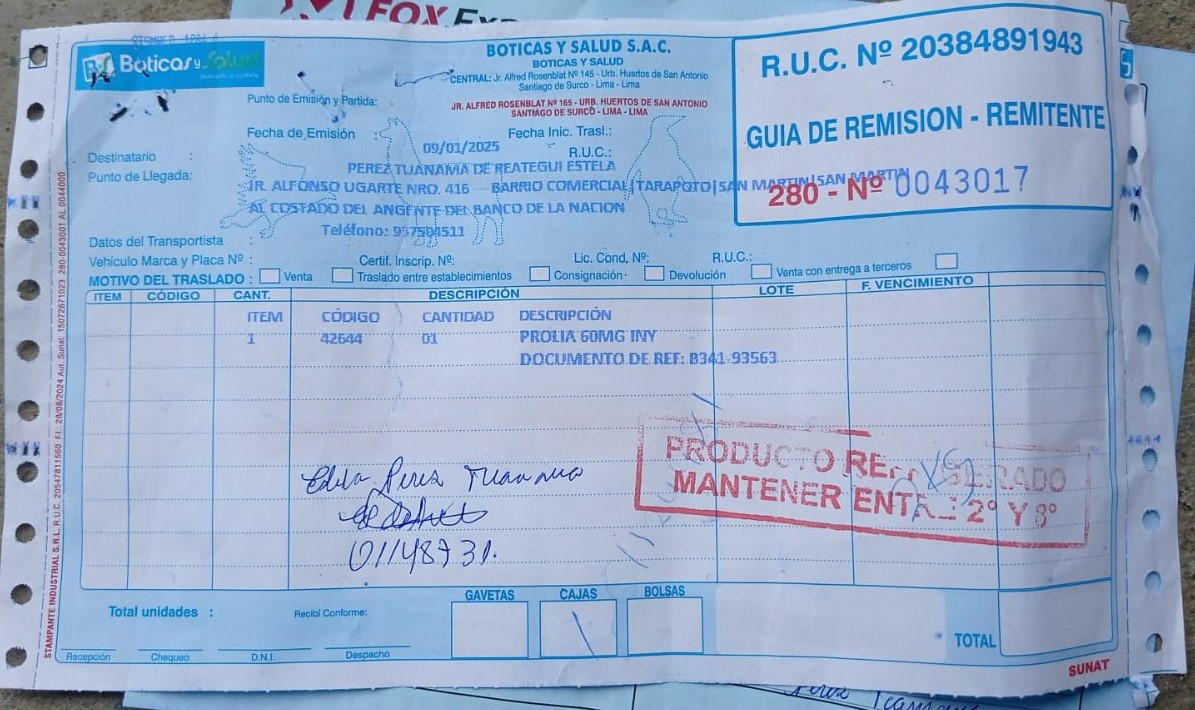 FOX
Boticas y Salud
BOTICAS Y SALUD S.A.C.
BOTICAS Y SALUD
CENTRAL: Jr. Alfred Rosenblat Nº 145 - Urb. Huertos de San Antonio
Santiago de Surco - Lima - Lima
Punto de Emisión y Partida:
JR. ALFRED ROSENBLAT Nº 165 - URB. HUERTOS DE SAN ANTONIO
SANTIAGO DE SURCO - LIMA - LIMA
R.U.C. Nº 20384891943
GUIA DE REMISION - REMITENTE
280 - Nº 0043017
Fecha de Emisión :
09/01/2025
Fecha Inic. Trasl.:
Destinatario :
PEREZ TUANAMA DE REATEGUI ESTELA
R.U.C.:
Punto de Llegada:
JR. ALFONSO UGARTE NRO. 416 BARRIO COMERCIAL|TARAPOTO|SAN MARTIN|SAN MARTIN
AL COSTADO DEL ANGENTE DEL BANCO DE LA NACION
Teléfono: 937504511
Datos del Transportista :
Vehículo Marca y Placa Nº :
Certif. Inscrip. Nº:
Lic. Cond, Nº:
R.U.C.:
MOTIVO DEL TRASLADO : Venta Traslado entre establecimientos Consignación Devolución Venta con entrega a terceros
ITEM CÓDIGO CANT. DESCRIPCIÓN LOTE F. VENCIMIENTO
ITEM CÓDIGO CANTIDAD DESCRIPCIÓN
1 42644 01 PROLIA 60MG INY
DOCUMENTO DE REF: B341-93563
PRODUCTO REFRIGERADO
MANTENER ENTRE 2° Y 8°
Perez Tuanama
01148731.
GAVETAS CAJAS BOLSAS
Total unidades :
Recibí Conforme:
TOTAL
Recepción Chequeo D.N.I. Despacho
SUNAT
STAMPANTE INDUSTRIAL S.R.L. R.U.C. 20547811560 F.I. 28/08/2024 Aut. Sunat: 15072671023 280-0043001 AL 0044000